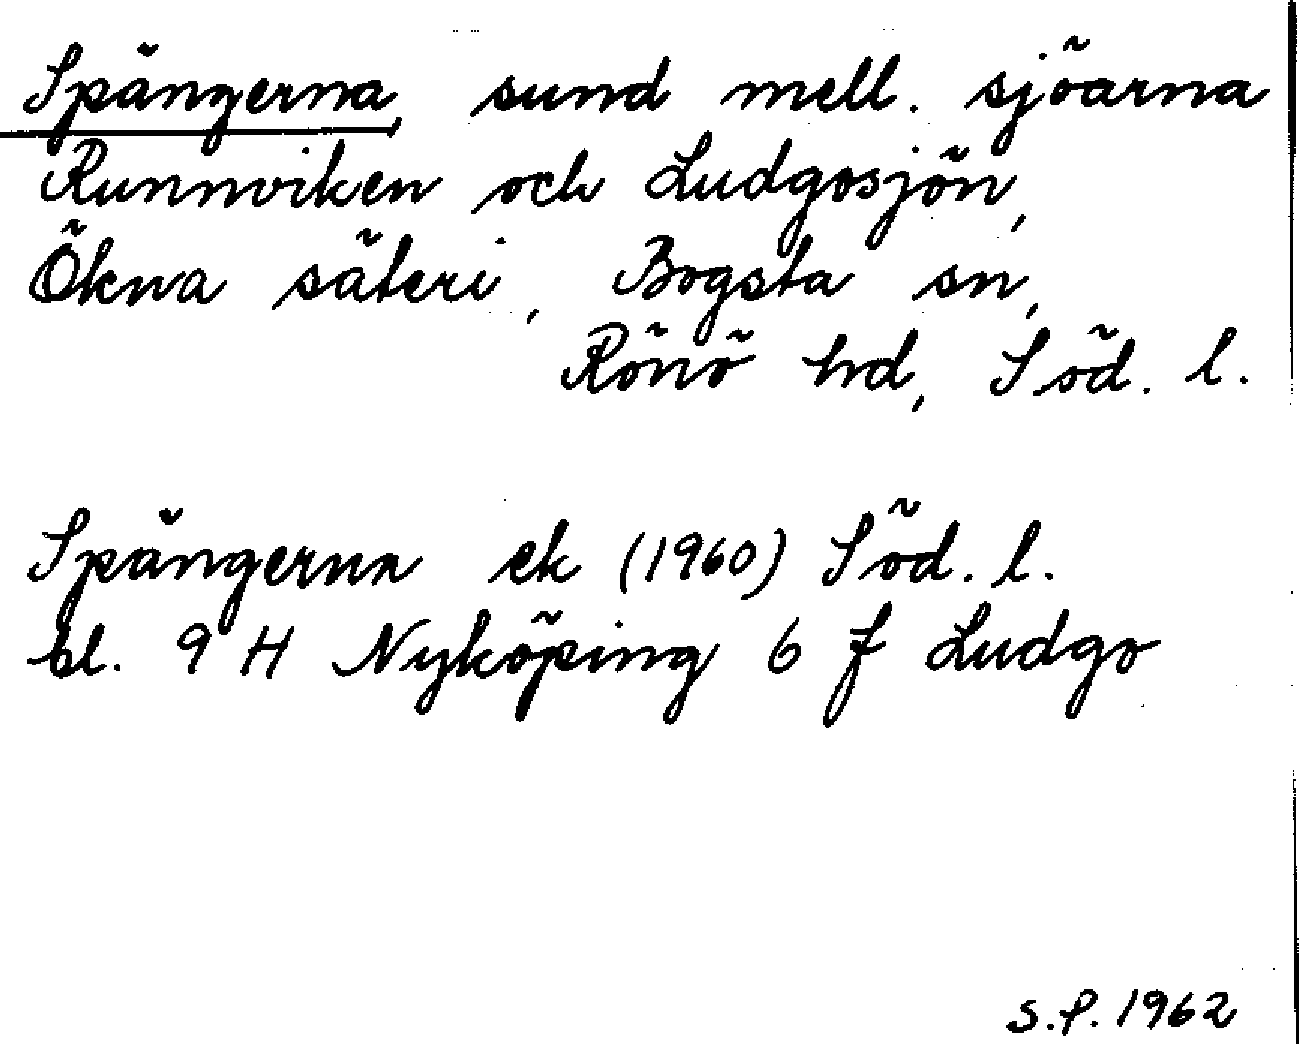 Spångerna, sund mell. sjöarna
Runnviken och Ludgosjön,
Ökna säteri, Bogsta sn,
Rönö hd, Söd. l.
Spångerna ek (1960) Söd. l.
bl. 9 H Nyköping 6 f Ludgo
S.P. 1962